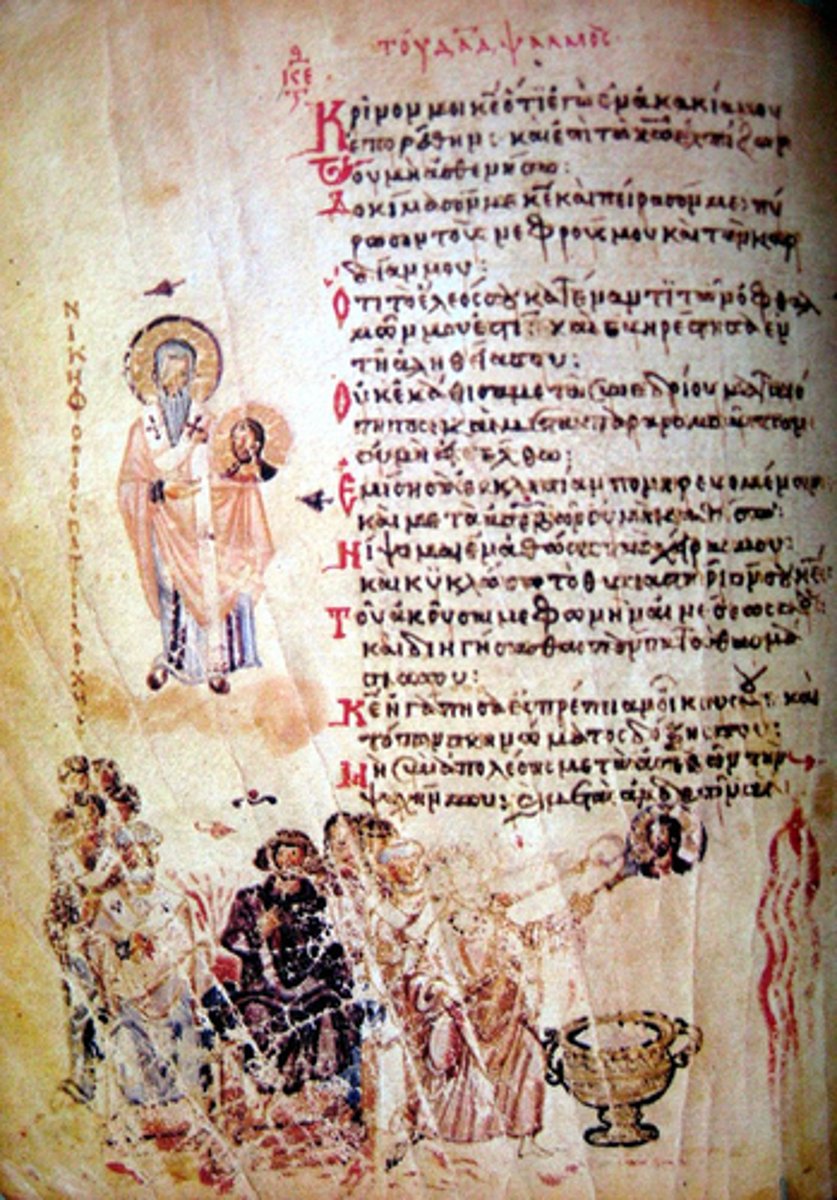 τοῦ δᾱδ, ψαλμὸς
Κρῖνόν μοι κ̄ε ὅτι ἐγὼ ἐν ἀκακία μου
ἐπορεύθην· καὶ ἐπὶ τῷ κ̄ω ἐλπίζων
οὐ μὴ ἀσθενήσω:
Δοκίμασόν με κ̄ε καὶ πείρασόν με· πύ
ρωσον τοὺς νεφρούς μου καὶ τὴν καρ
δίαν μου:
Ὅτι τὸ ἔλεός σου κατέναντι τῶν ὀφθαλ
μῶν μου ἐστί: καὶ εὐηρέστησα ἐν
τῆ ἀληθεία σου:
Οὐκ ἐκάθισα μετὰ συνεδρίου ματαιό
τητος· καὶ μετὰ παρανομούντων
οὐ μὴ εἰσέλθω:
Ἐμίσησα ἐκκλησίαν πονηρευομένων·
καὶ μετὰ ἀσεβῶν οὐ μὴ καθίσω:
Νίψομαι ἐν ἀθώοις τὰς χεῖρας μου·
καὶ κυκλώσω τὸ θυσιαστήριόν σου κ̄ε:
Τοῦ ἀκοῦσαι με φωνὴν αἰνέσεως σου:
καὶ διηγήσασθαι πάντα τὰ θαυμά
σια σου:
Κ̄ε ἠγάπησα εὐπρέπειαν οἴκου σου: καὶ
τόπον σκηνώματος δόξης σου:
Μὴ συναπολέσης μετὰ ἀσεβῶν τὴν
ψυχήν μου:
ΝΙΚΗΦΟΡΟC Ο ΠΑΤΡΙΑΡΧΗC